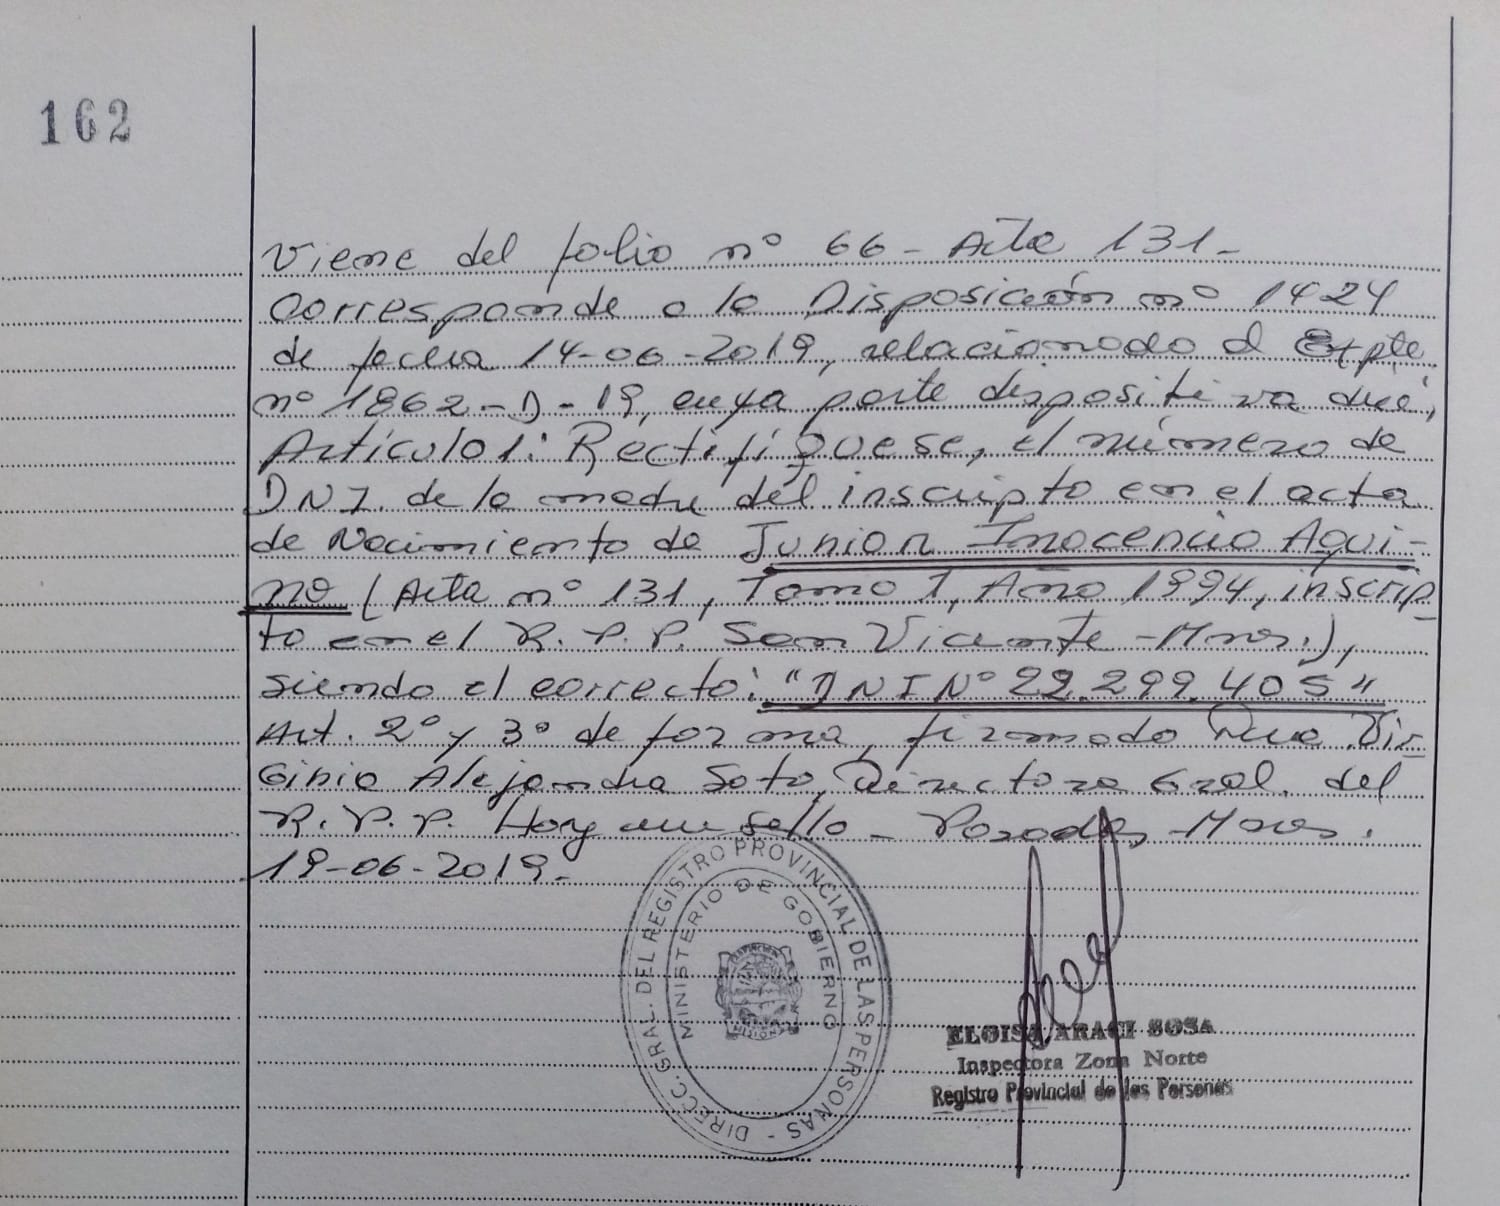 162
Viene del folio nº 66 - Acta 131 -
Corresponde a la Disposición nº 1424
de fecha 14-06-2019, relacionado al Expte
nº 1862-D-19, cuya parte dispositiva dice,
Artículo 1: Rectifíquese, el número de
DNI. de la madre del inscripto en el acta
de Nacimiento de Junior Inocencio Aqui-
no (Acta nº 131, Tomo 1, Año 1994, inscrip-
to en el R. P. P. San Vicente - Mnes.),
siendo el correcto: "DNI Nº 22.299.405"
Art. 2º y 3º de forma, firmado Vir-
ginia Alejandra Soto, Directora Gral. del
R. P. P. Hay un sello - Posadas, Mnes.
19-06-2019.-
DIRECC. GRAL. DEL REGISTRO PROVINCIAL DE LAS PERSONAS -
MINISTERIO DE GOBIERNO
MISIONES
ELOISA ARACI SOSA
Inspectora Zona Norte
Registro Provincial de las Personas